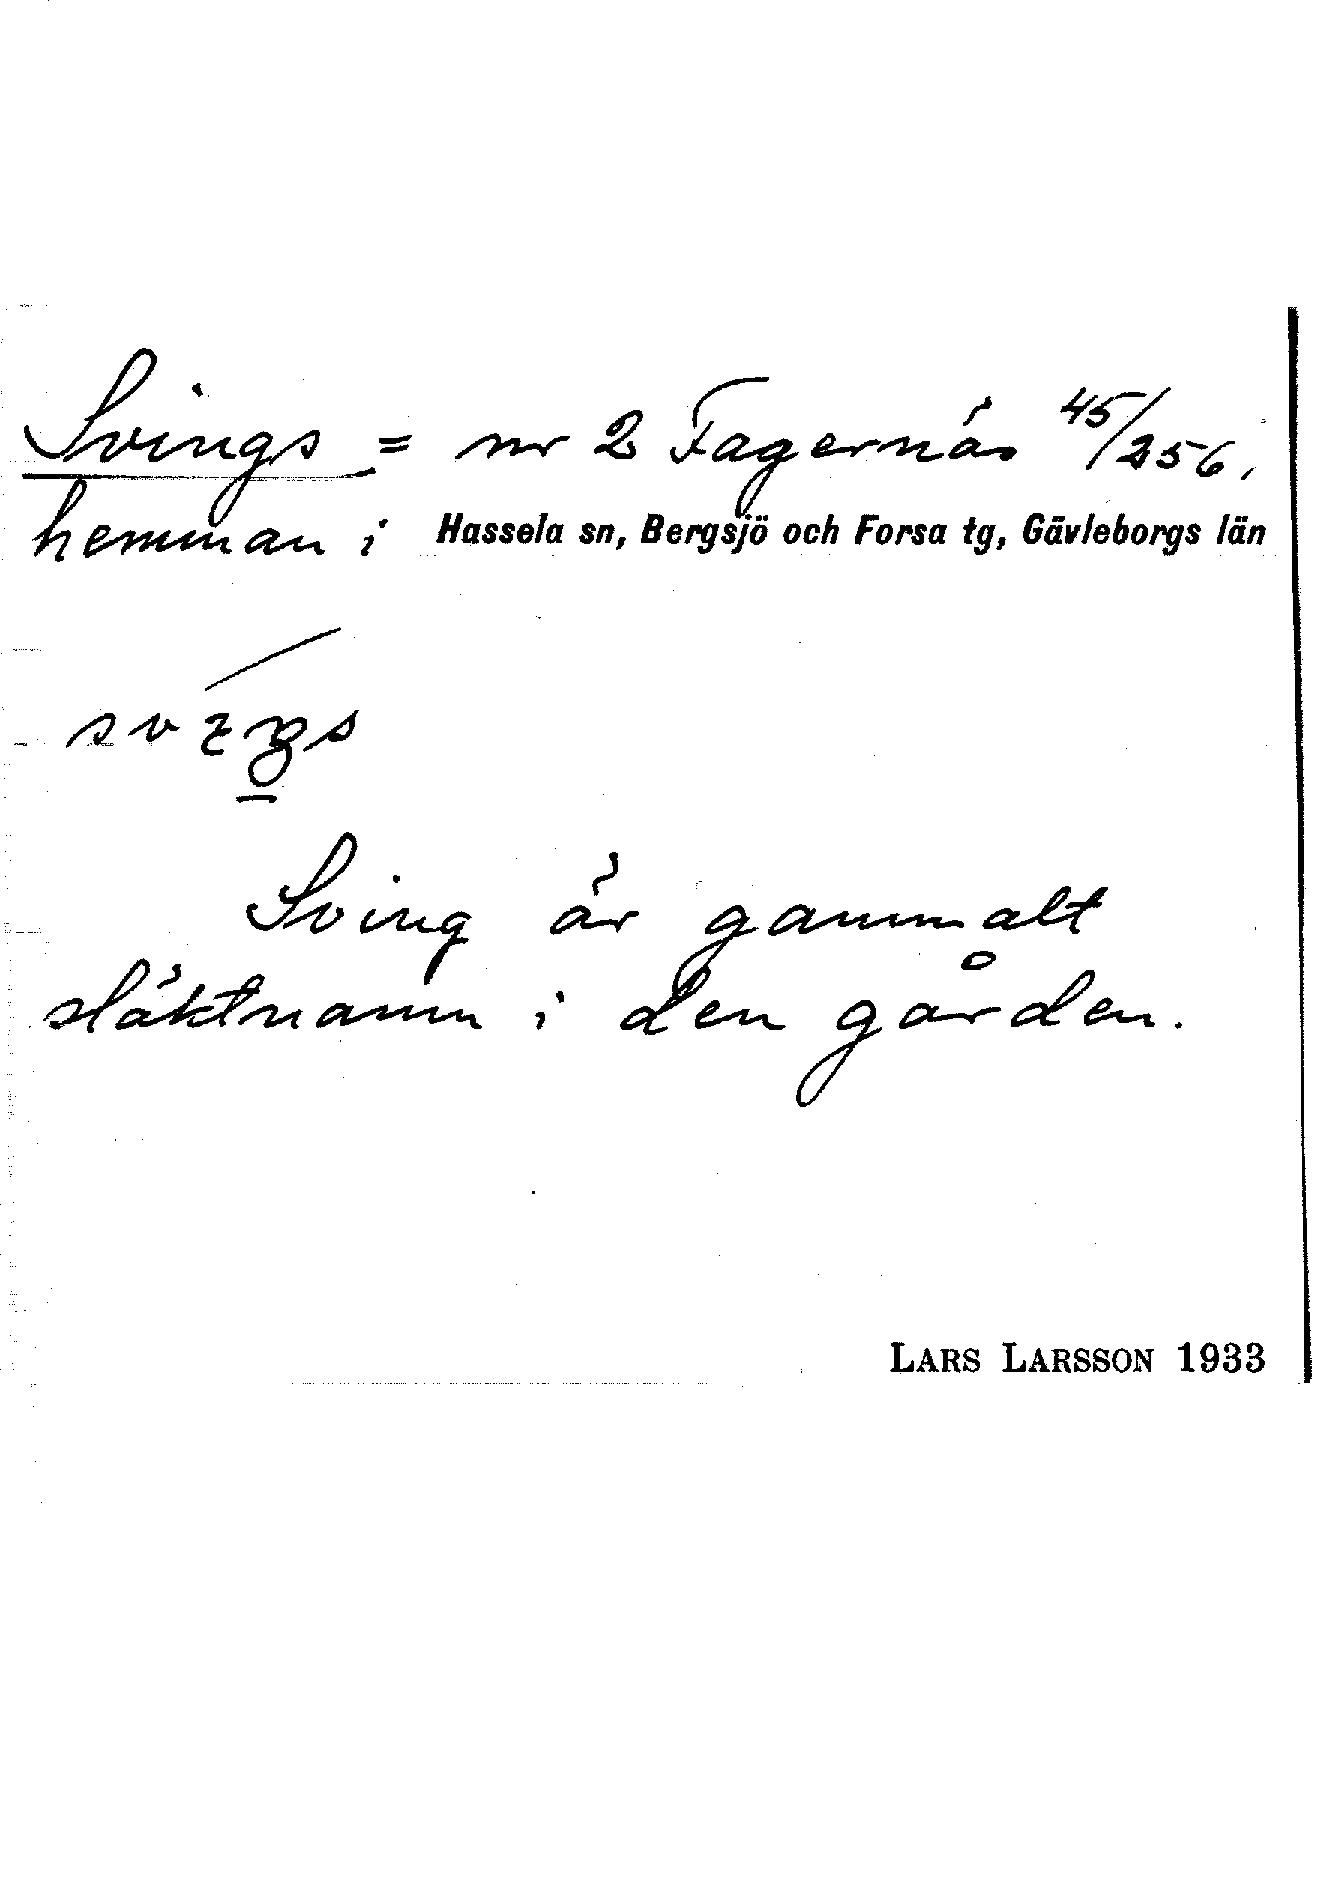 Svings = nr 2 Fagernäs 45/256,
hemman i Hassela sn, Bergsjö och Forsa tg, Gävleborgs län
Sving är gammalt
släktnamn i den gården.
LARS LARSSON 1933